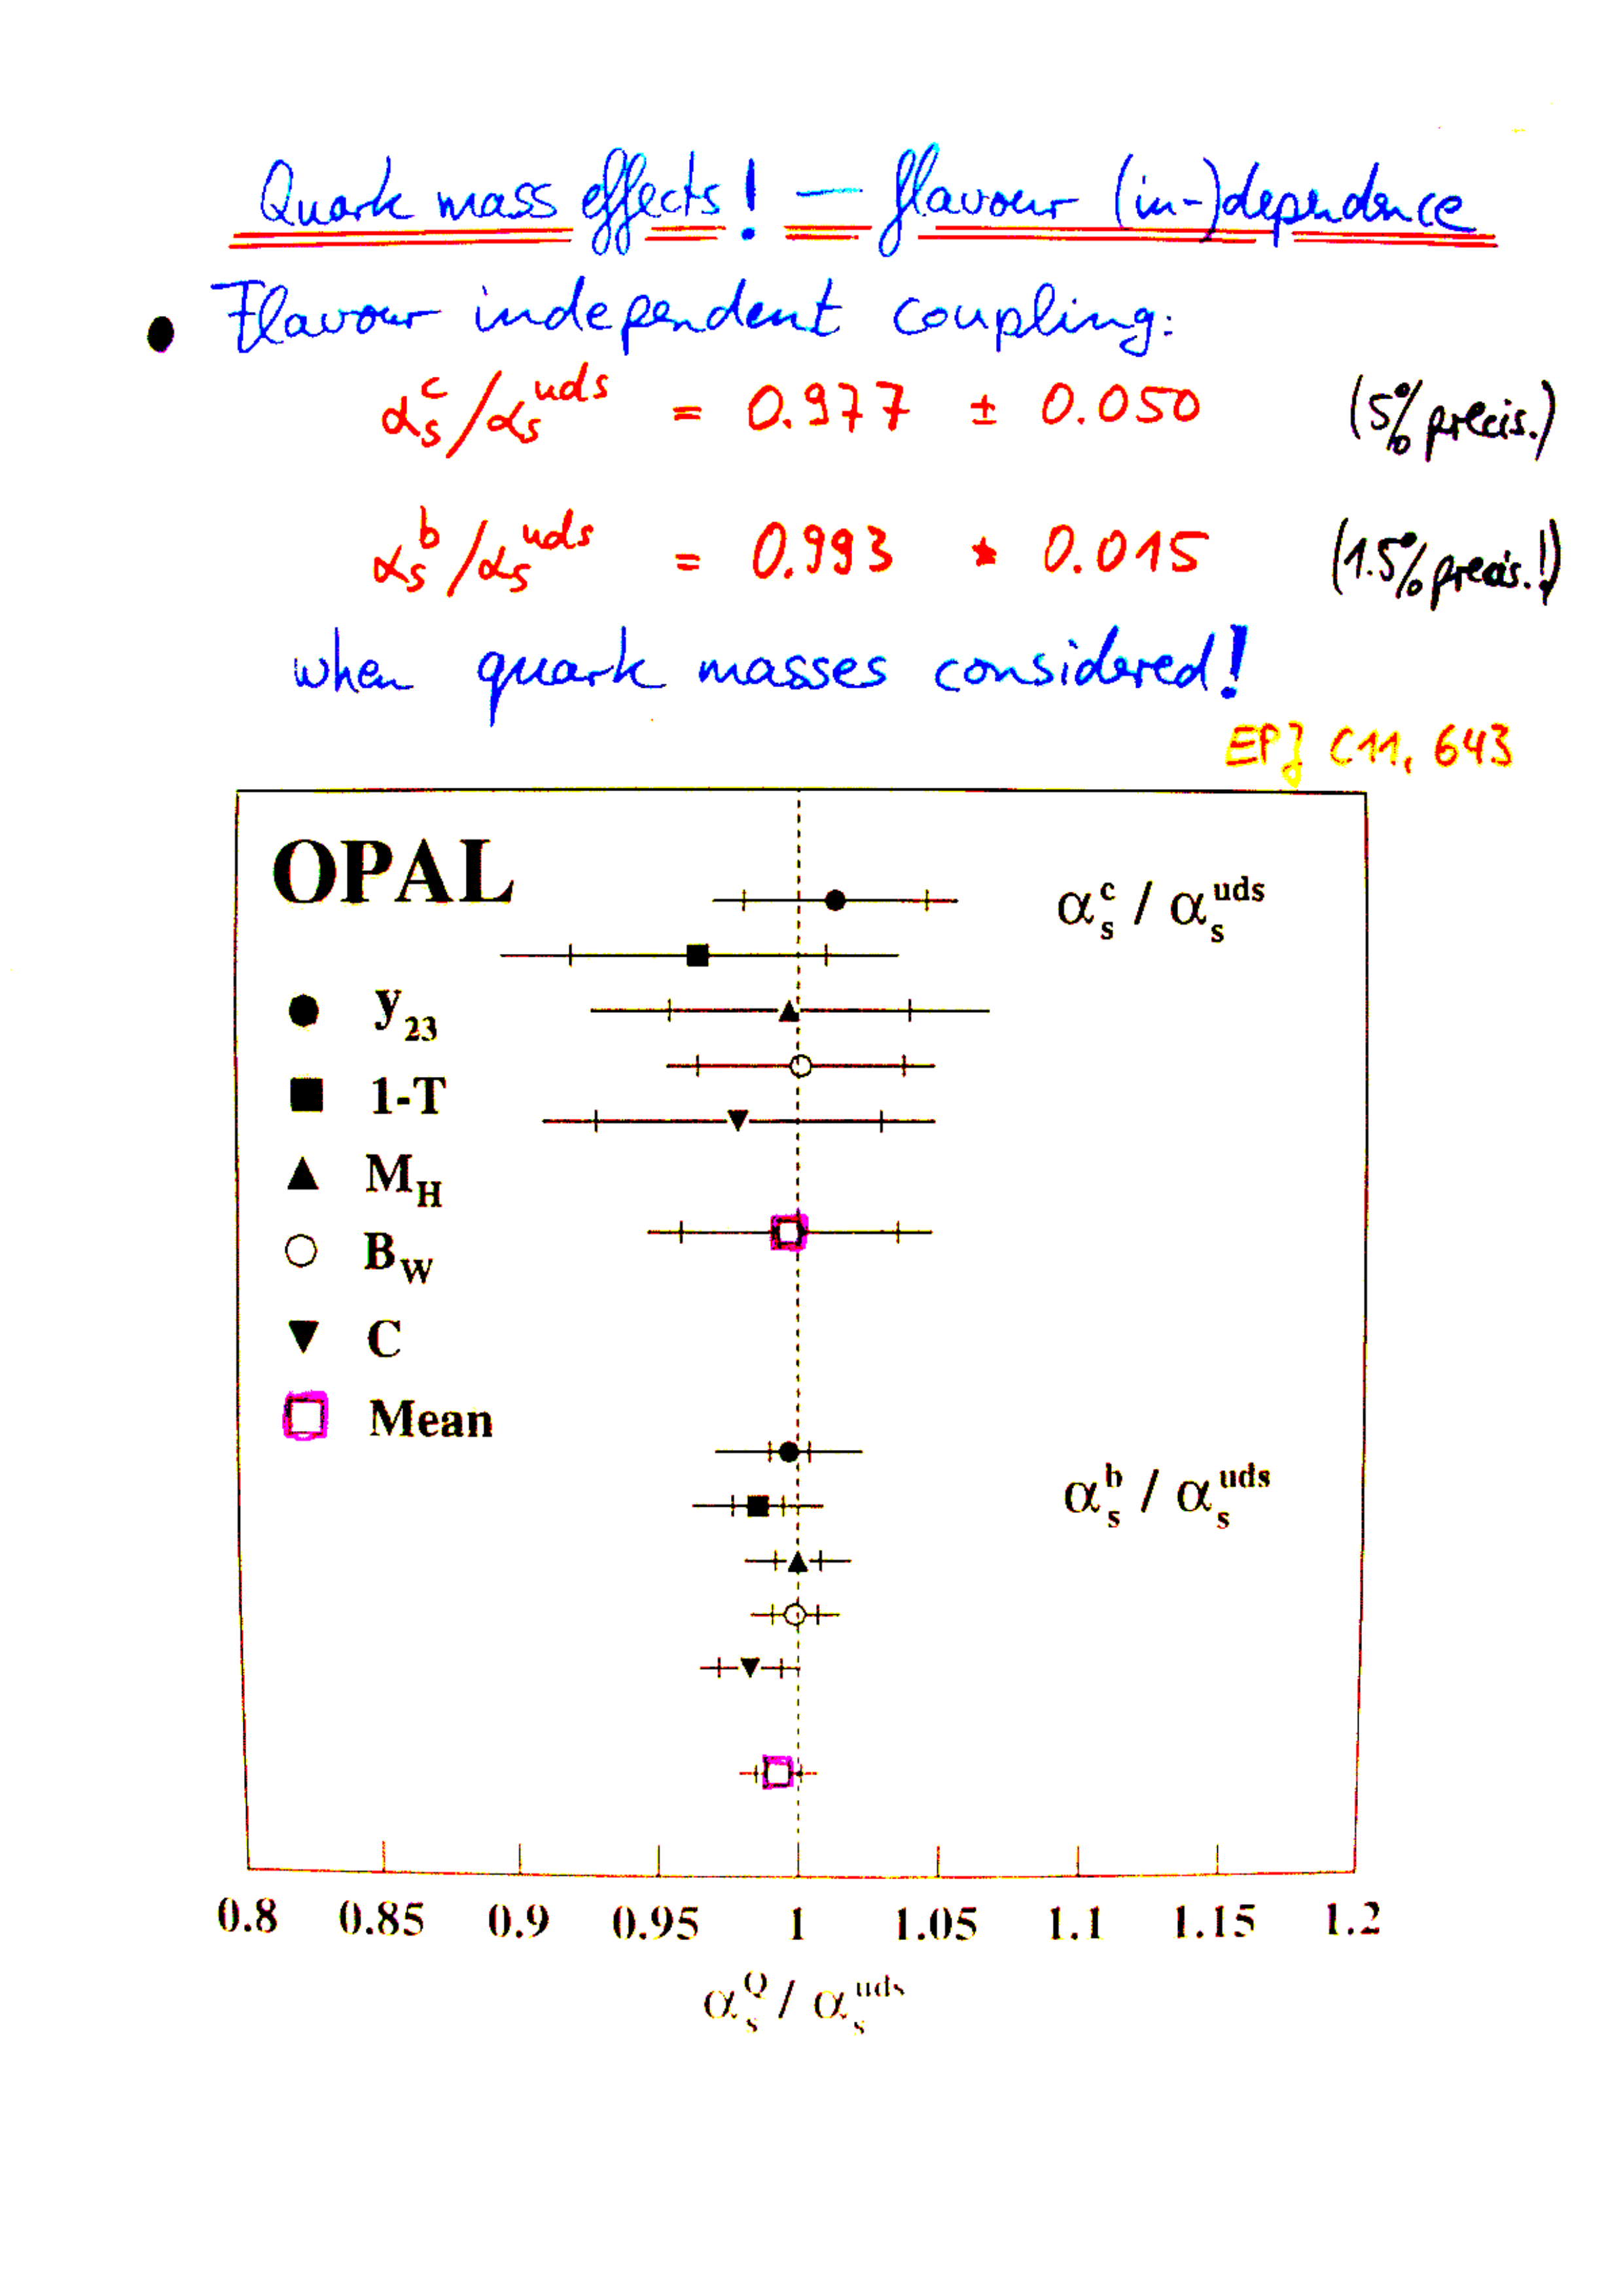 Quark mass effects! — flavour (in-)dependence
• Flavour independent coupling:
α_s^c/α_s^uds = 0.977 ± 0.050 (5% precis.)
α_s^b/α_s^uds = 0.993 ± 0.015 (1.5% precis.!)
when quark masses considered!
EPJ C11, 643
OPAL
α_s^c / α_s^uds
y_23
1-T
M_H
B_W
C
Mean
α_s^b / α_s^uds
0.8 0.85 0.9 0.95 1 1.05 1.1 1.15 1.2
α_s^Q / α_s^uds